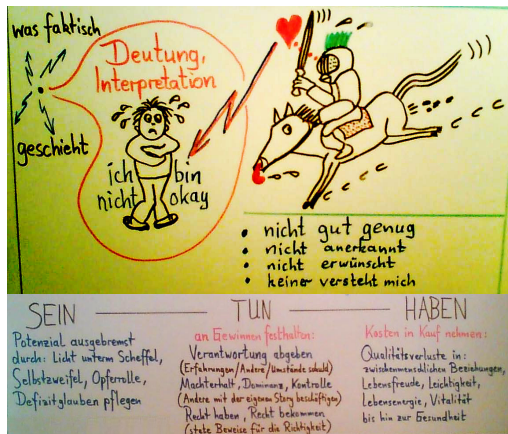 was faktisch
geschieht
Deutung,
Interpretation
ich bin
nicht okay
• nicht gut genug
• nicht anerkannt
• nicht erwünscht
• keiner versteht mich
SEIN — TUN — HABEN
Potenzial ausgebremst
durch: Licht unterm Scheffel,
Selbstzweifel, Opferrolle,
Defizitglauben pflegen
an Gewinnen festhalten:
Verantwortung abgeben
(Erfahrungen/Andere/Umstände schuld)
Machterhalt, Dominanz, Kontrolle
(Andere mit der eigenen Story beschäftigen)
Recht haben, Recht bekommen
(stete Beweise für die Richtigkeit)
Kosten in Kauf nehmen:
Qualitätsverluste in:
zwischenmenschlichen Beziehungen,
Lebensfreude, Leichtigkeit,
Lebensenergie, Vitalität
bis hin zur Gesundheit